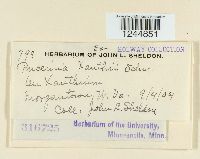 Ex-
HOLWAY COLLECTION
1244851
793
HERBARIUM OF JOHN L. SHELDON.
Puccinia Xanthii Schw.
On Xanthium
Morgantown W. Va. 9/4/04
Coll. John L. Sheldon
316725
Herbarium of the University,
Minneapolis, Minn.